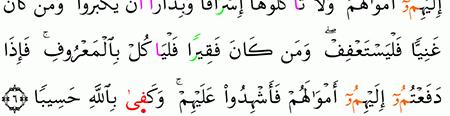 إِلَيْهِمُۥٓ أَمْوَٰلَهُمْ وَلَا تَاكُلُوهَا إِسْرَافًا وَبِدَارًا أَن يَكْبَرُوا۟ وَمَن كَانَ
غَنِيًّا فَلْيَسْتَعْفِفْ ۖ وَمَن كَانَ فَقِيرًا فَلْيَاكُلْ بِالْمَعْرُوفِ ۚ فَإِذَا
دَفَعْتُمُۥٓ إِلَيْهِمُۥٓ أَمْوَٰلَهُمْ فَأَشْهِدُوا۟ عَلَيْهِمْ ۚ وَكَفَىٰ بِاللَّهِ حَسِيبًا ﴿٦﴾